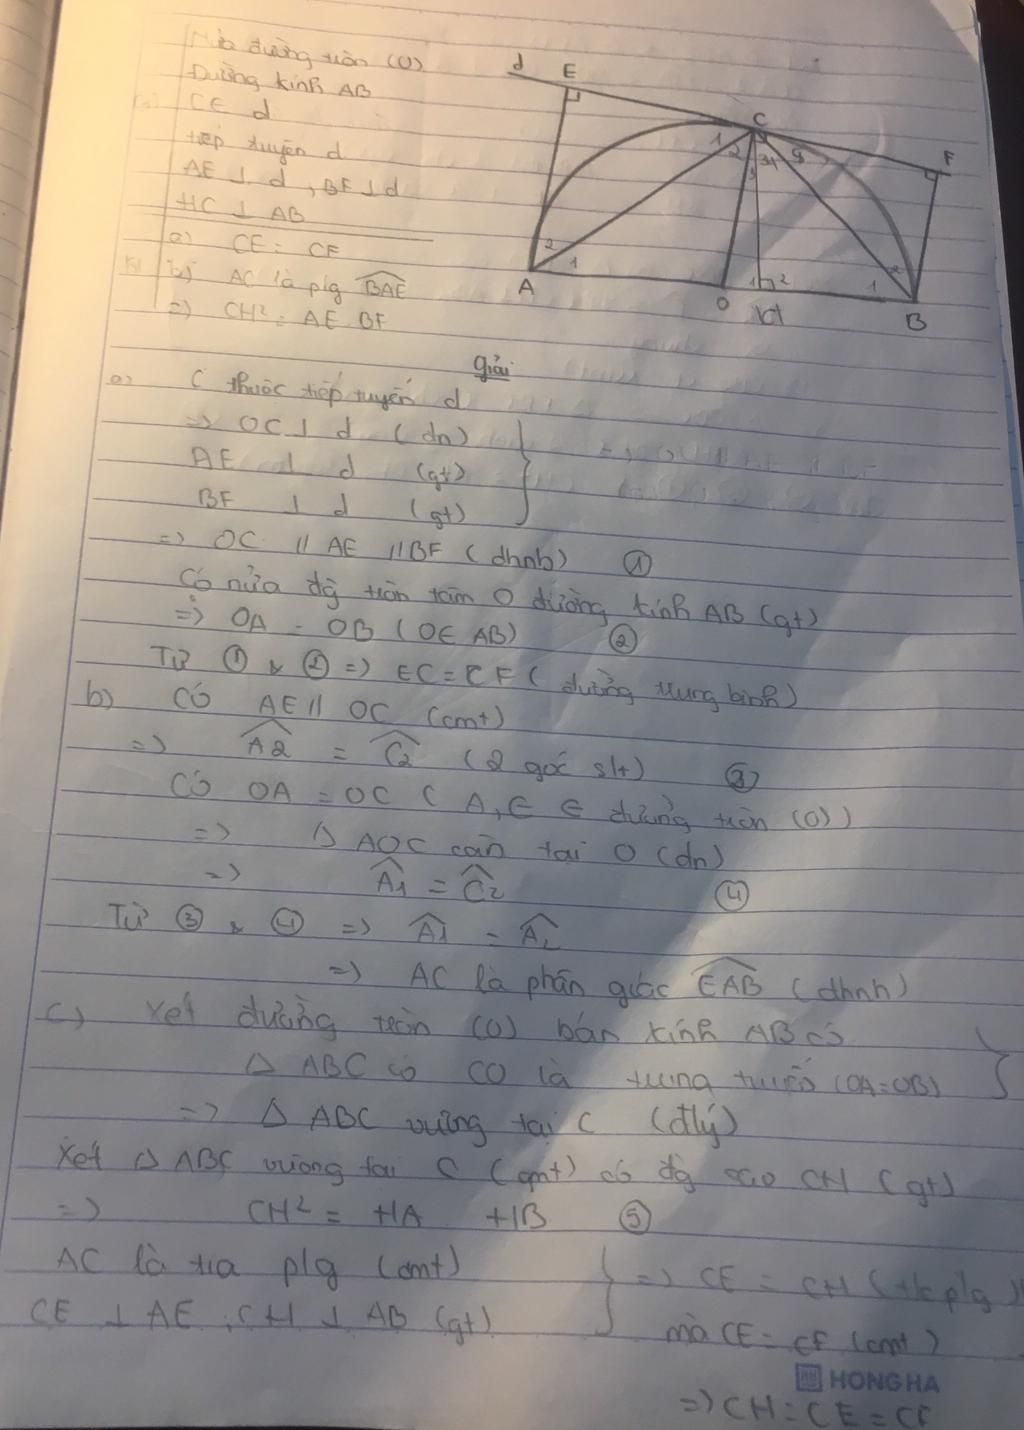 Nửa đường tròn (O)
Đường kính AB
CE d
tiếp tuyến d
AE ⊥ d, BF ⊥ d
HC ⊥ AB
a) CE = CF
Kl b) AC là p/g BAE
=> CH² = AE BF
d E C F
1 2 3 4 5
2 1 A O 1 2 H 1 2 B
Giải
a) C thuộc tiếp tuyến d
=> OC ⊥ d (dn)
AE ⊥ d (gt)
BF ⊥ d (gt)
=> OC // AE // BF (dhnb) ①
Có nửa đg tròn tâm O đường kính AB (gt)
=> OA = OB (O ∈ AB) ②
Từ ① & ② => EC = CF (đường trung bình)
b) Có AE // OC (cmt)
=> A2 = C2 (2 góc slt) ③
Có OA = OC (A, C ∈ đường tròn (O))
=> Δ AOC cân tại O (dn)
=> A1 = C2 ④
Từ ③ & ④ => A1 = A2
=> AC là phân giác EAB (dhnb)
c) Xét đường tròn (O) bán kính AB có
Δ ABC có CO là trung tuyến (OA = OB)
=> Δ ABC vuông tại C (đlý)
Xét Δ ABC vuông tại C (cmt) có đg cao CH (gt)
=> CH² = HA HB ⑤
AC là tia p/g (cmt)
CE ⊥ AE, CH ⊥ AB (gt)
=> CE = CH (t/c p/g)
mà CE = CF (cmt)
HONG HA
=> CH = CE = CF